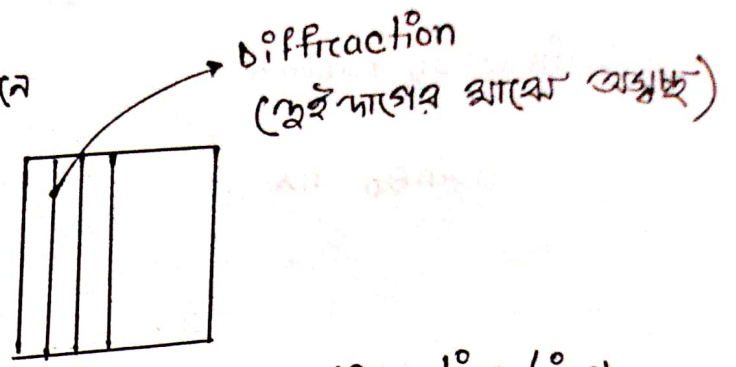 নে
Diffraction
(দুই দাগের মাঝে অস্বচ্ছ)